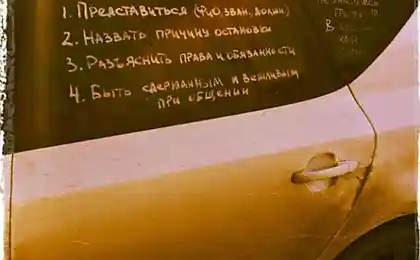 1. Представиться (Фио, зван, должн)
2. Назвать причину остановки
3. Разъяснить права и обязанности
4. Быть сдержанным и вежливым
при общении
В